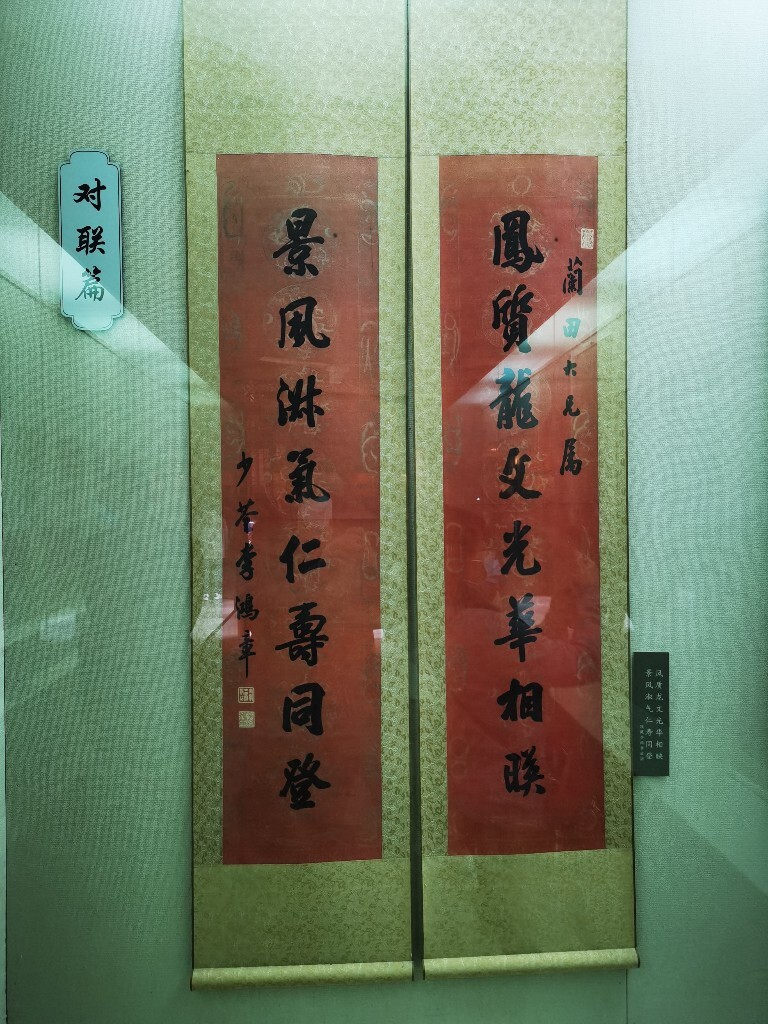 对联篇
蘭田大兄属
鳳質龍文光華相暎
景風淋氣仁壽同登
少荃李鴻章
凤质龙文光华相映
景风淑气仁寿同登